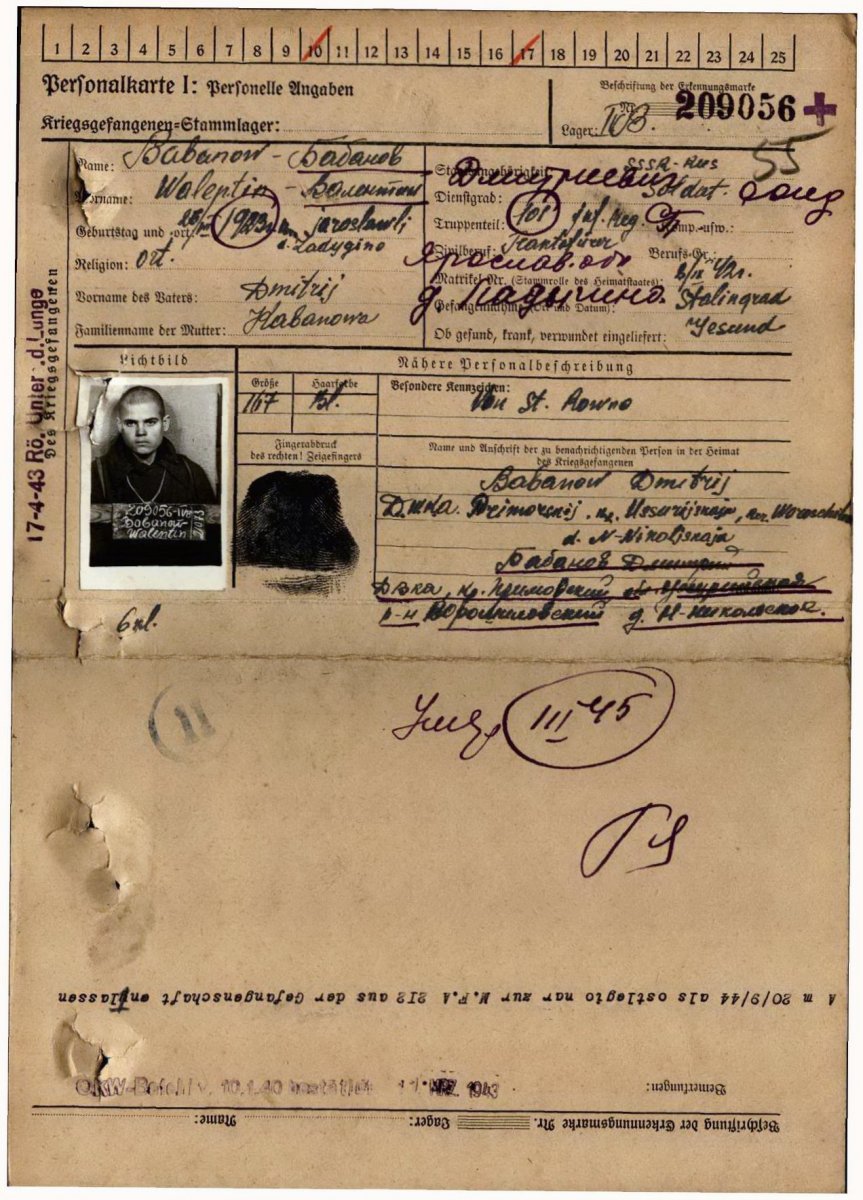 1 2 3 4 5 6 7 8 9 10 11 12 13 14 15 16 17 18 19 20 21 22 23 24 25
Personalkarte I: Personelle Angaben
Kriegsgefangenen-Stammlager:
Beschriftung der Erkennungsmarke
Nr. 209056
Lager: IVB.
55
Des Kriegsgefangenen
17-4-43 Rö. Unter .d. Lunge
Name: Babanow - Бабанов
Vorname: Walentin - Валентин
Geburtstag und -ort: 1923 Jaroslawlj
d. Ladygino
Religion: Ort.
Vorname des Vaters: Dmitrij
Familienname der Mutter: Kabanowa
Staatsangehörigkeit: SSSR - Rus
Дмитриевич
Dienstgrad: Soldat. солд
Truppenteil: 101 Inf. Reg. Komp.-usw.:
Zivilberuf: Berufs-Gr.:
Ярослав. обл
Matrikel Nr. (Stammrolle des Heimatstaates):
д. Ладыгино.
Gefangennahme (Ort und Datum): Stalingrad
Ob gesund, krank, verwundet eingeliefert: Gesund
Lichtbild
Nähere Personalbeschreibung
Größe
167
Haarfarbe
Bl.
Besondere Kennzeichen:
Von St. Rowno
Fingerabdruck
des rechten! Zeigefingers
Name und Anschrift der zu benachrichtigenden Person in der Heimat
des Kriegsgefangenen
Babanow Dmitrij
Primorskij
d. N-Nikoljskaja
Бабанов Дмитрий
р-н Ворошиловский д. Н-Никольское.
209056-IVB
Babanow
Walentin
11
III 45
Am 20/9/44 als ostlegio nar zur M.F.A 212 aus der Gefangenschaft entlassen
OKW-Befehl v. 10.1.40 bestätigt 1943
Bemerkungen:
Beschriftung der Erkennungsmarke Nr. Lager: Name: